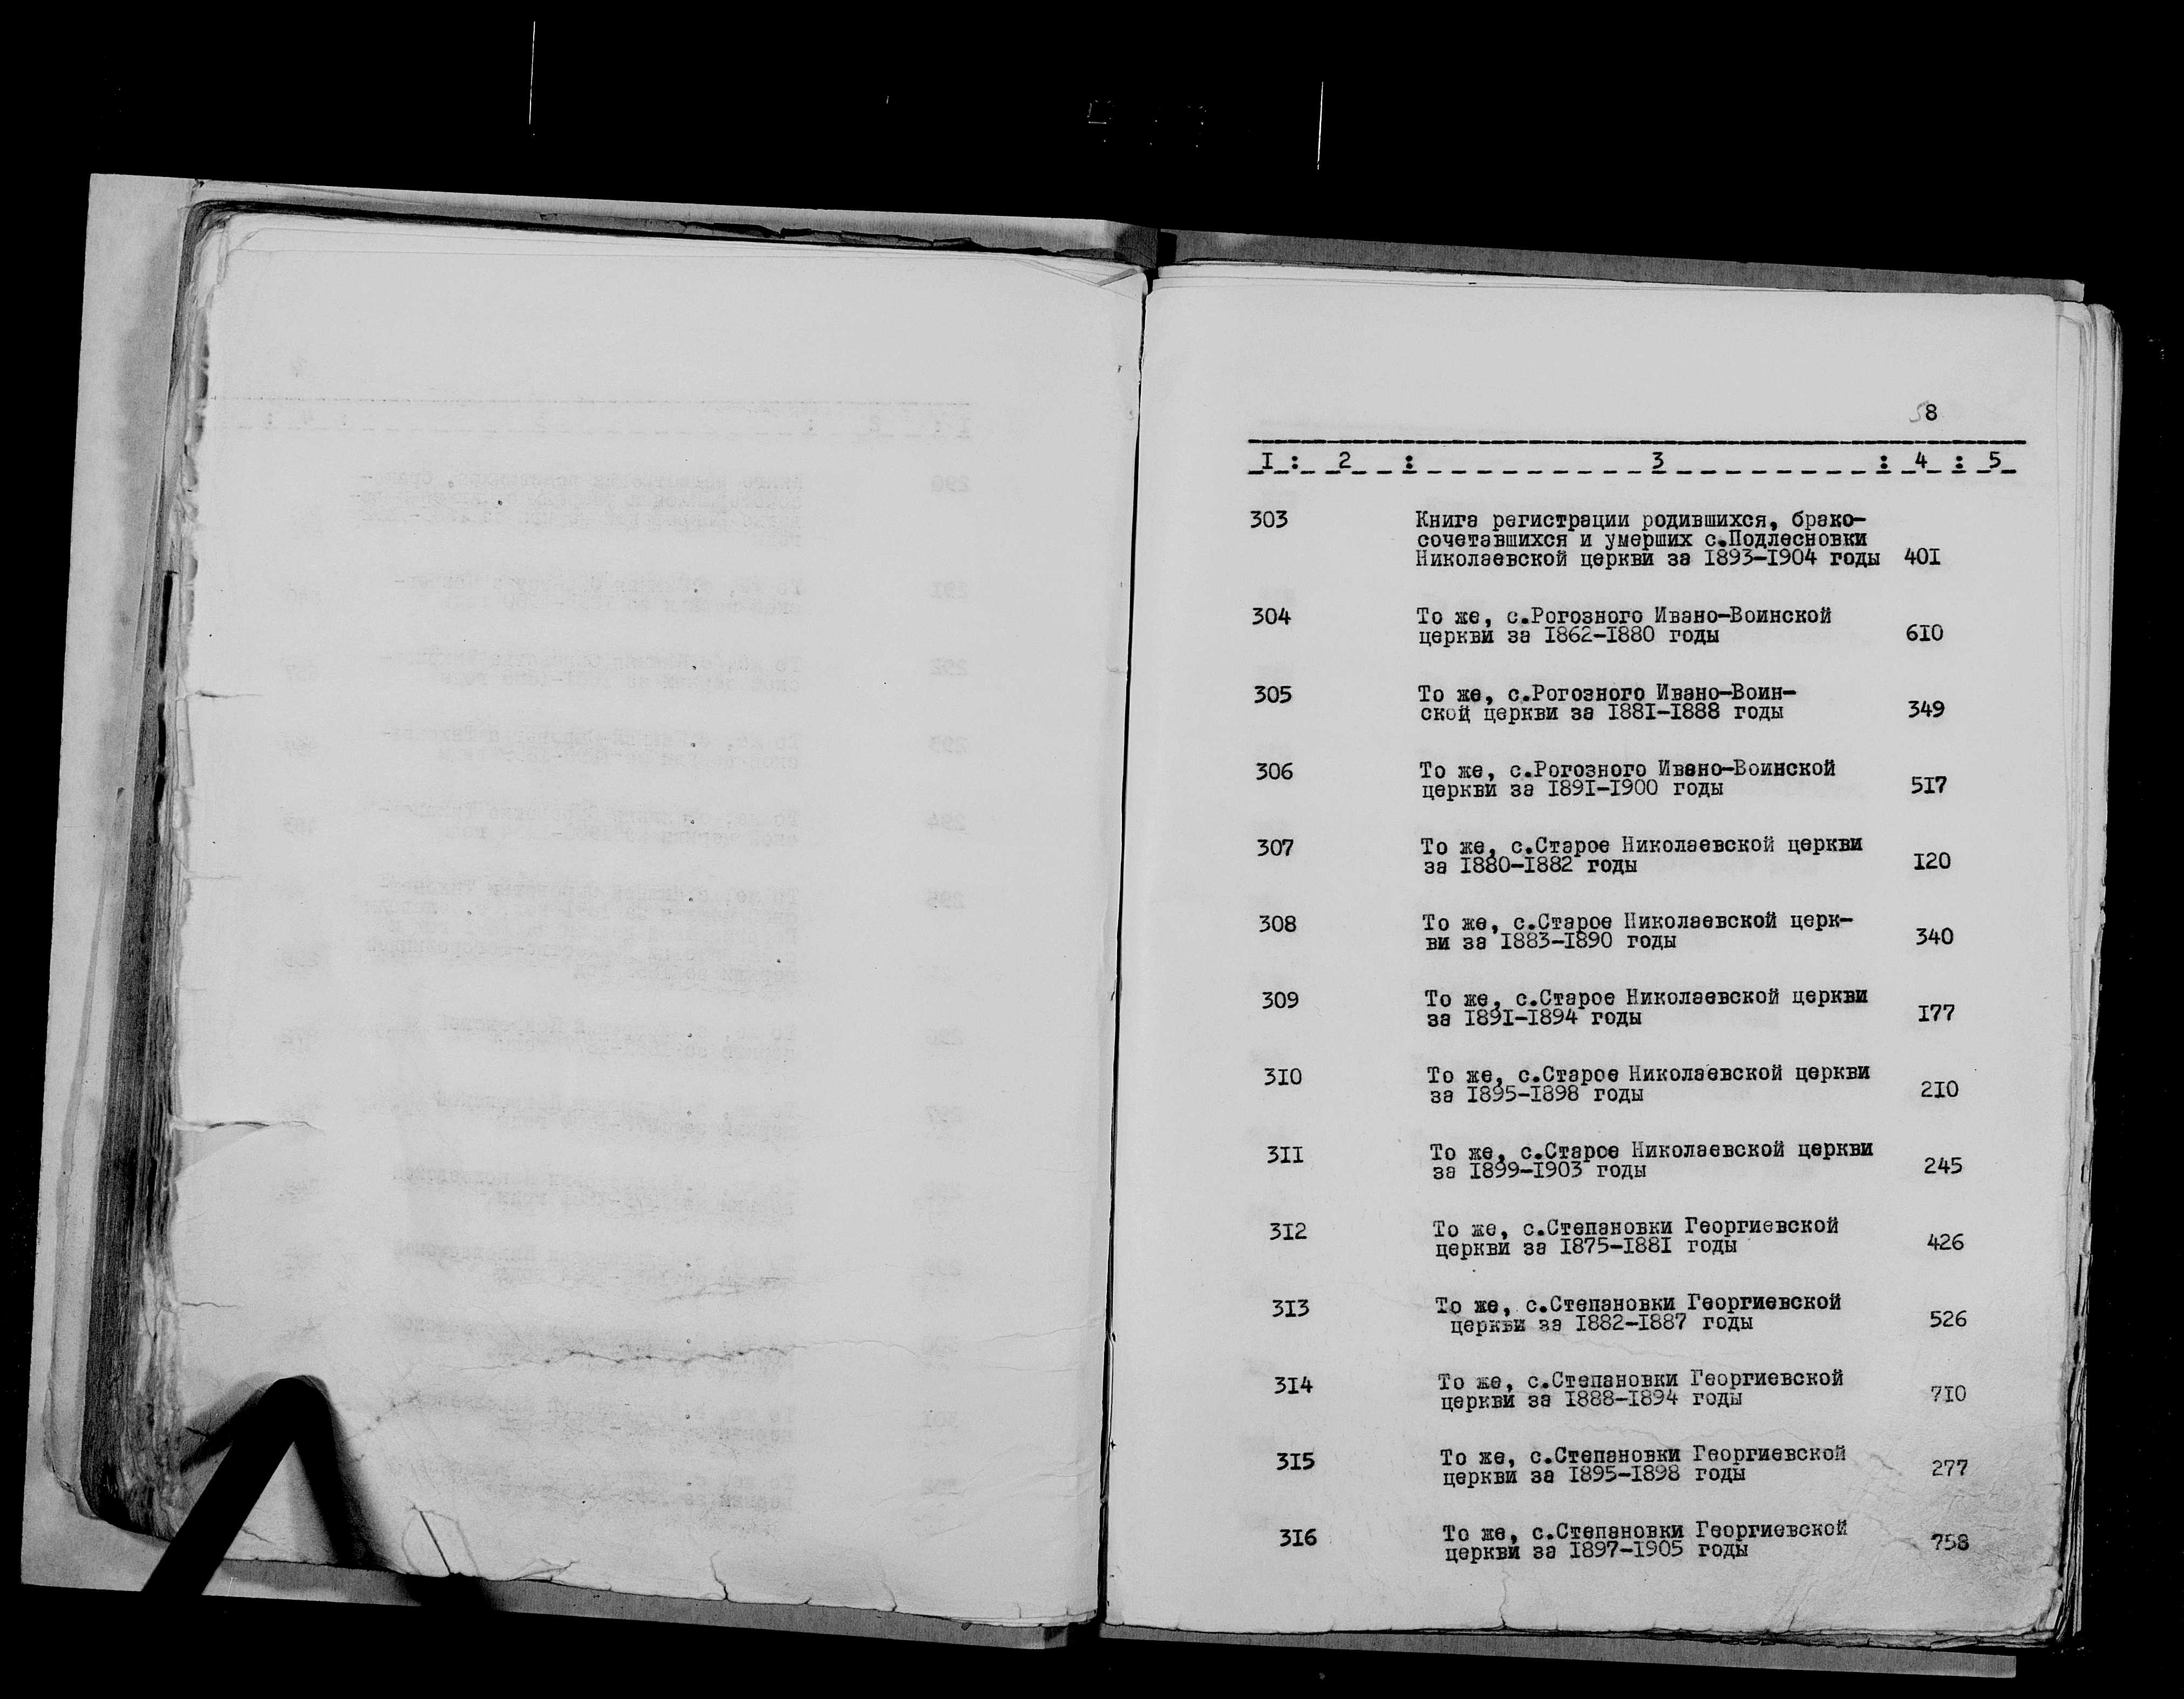 58
I : 2 : 3 : 4 : 5
303 Книга регистрации родившихся, брако-
сочетавшихся и умерших с.Подлесновки
Николаевской церкви за 1893-1904 годы 401
304 То же, с.Рогозного Ивано-Воинской
церкви за 1862-1880 годы 610
305 То же, с.Рогозного Ивано-Воин-
ской церкви за 1881-1888 годы 349
306 То же, с.Рогозного Ивано-Воинской
церкви за 1891-1900 годы 517
307 То же, с.Старое Николаевской церкви
за 1880-1882 годы 120
308 То же, с.Старое Николаевской церк-
ви за 1883-1890 годы 340
309 То же, с.Старое Николаевской церкви
за 1891-1894 годы 177
310 То же, с.Старое Николаевской церкви
за 1895-1898 годы 210
311 То же, с.Старое Николаевской церкви
за 1899-1903 годы 245
312 То же, с.Степановки Георгиевской
церкви за 1875-1881 годы 426
313 То же, с.Степановки Георгиевской
церкви за 1882-1887 годы 526
314 То же, с.Степановки Георгиевской
церкви за 1888-1894 годы 710
315 То же, с.Степановки Георгиевской
церкви за 1895-1898 годы 277
316 То же, с.Степановки Георгиевской
церкви за 1897-1905 годы 758